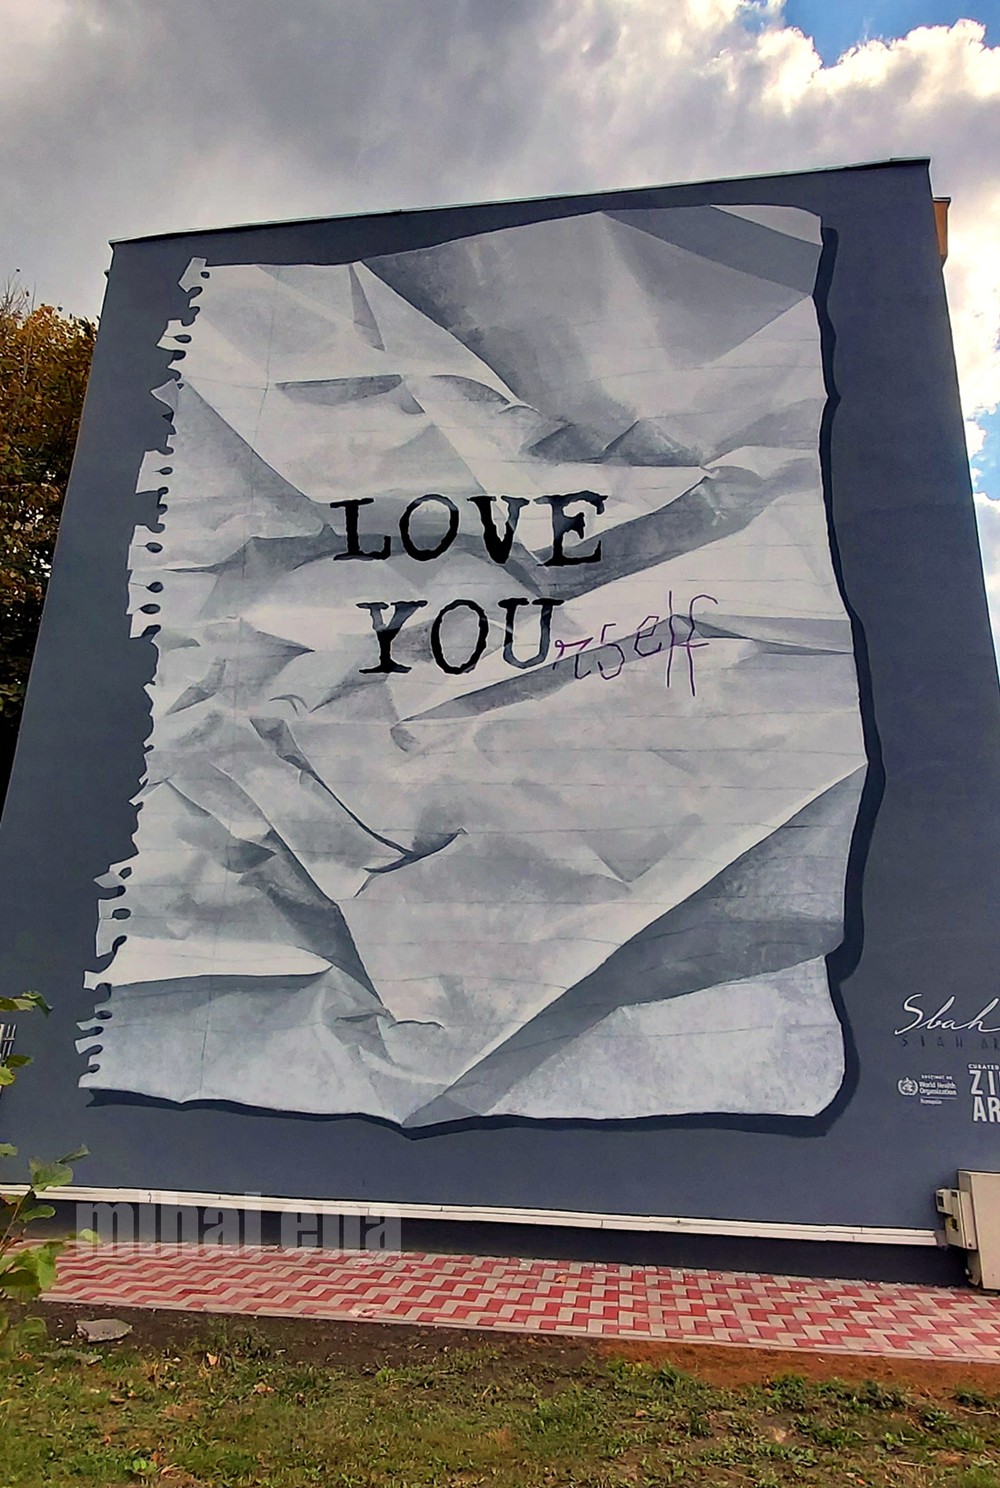 LOVE
YOUrself
Sbah
SBAH AR
World Health
Organization
Romania
CURATED
ZI
AR
mihai ena